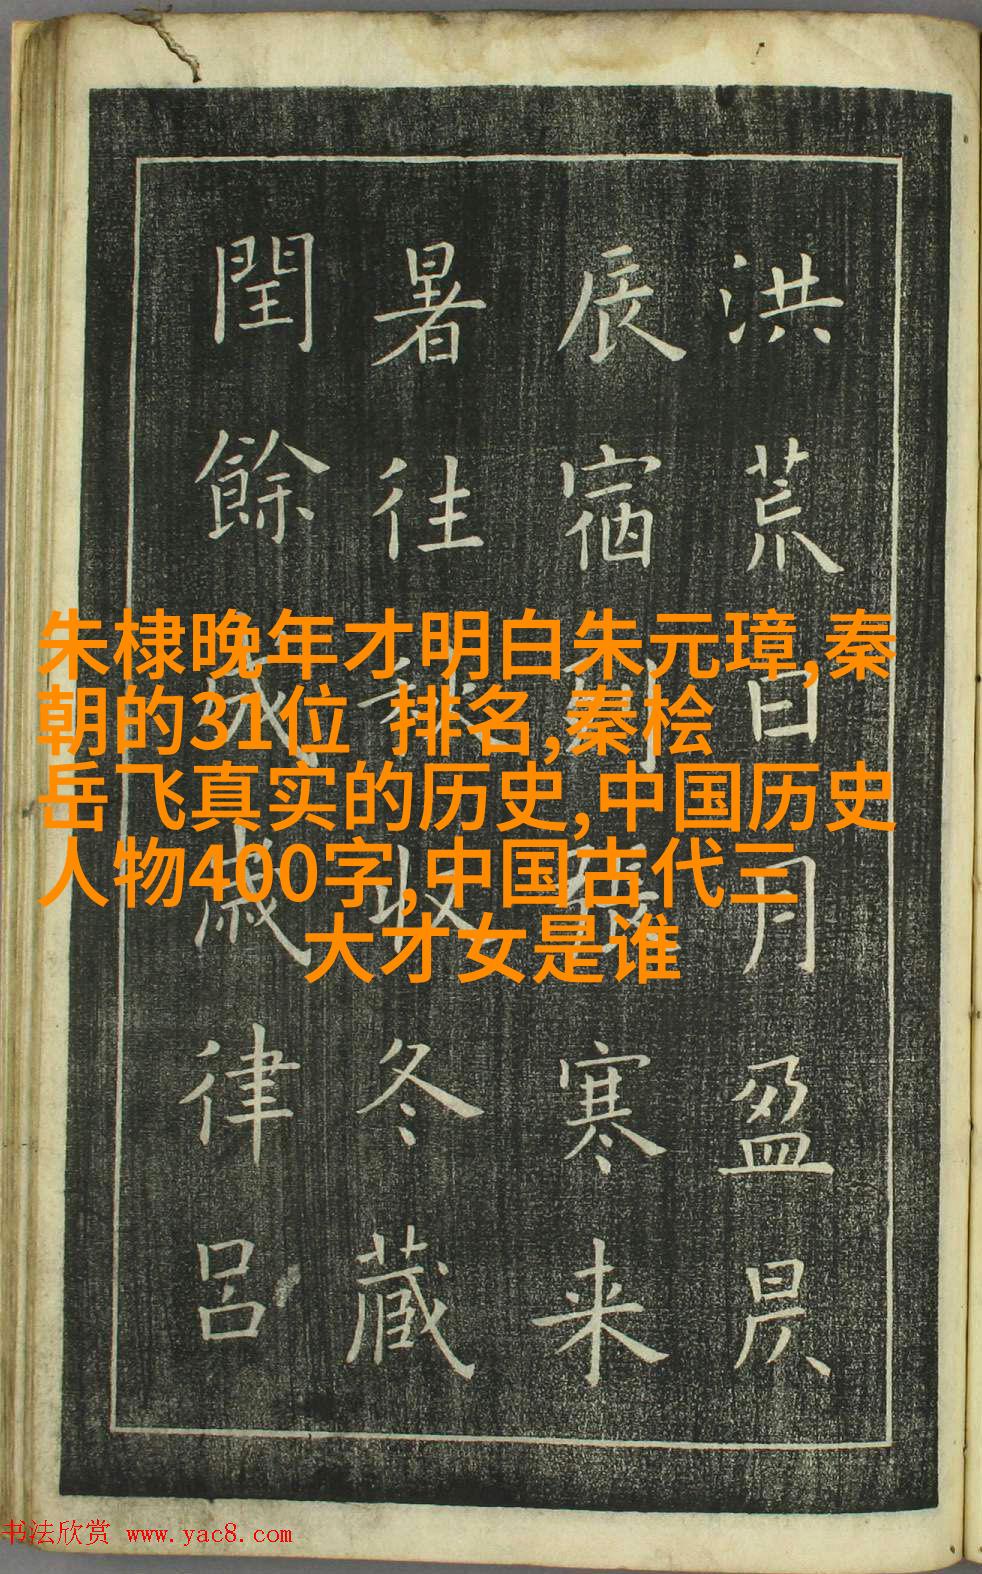 洪荒日月盈昃
辰宿列張寒来
暑往秋收冬藏
閏餘成歲律呂
朱棣晚年才明白朱元璋,秦
朝的31位 排名,秦桧
岳飞真实的历史,中国历史
人物400字,中国古代三
大才女是谁
书法欣赏 www.yac8.com